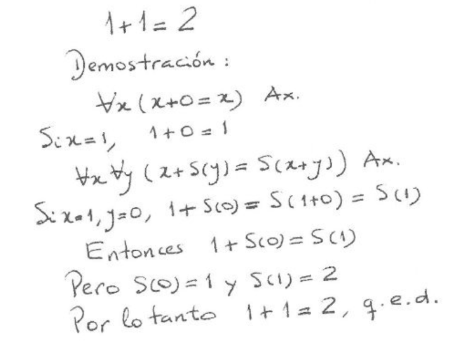 1+1=2
Demostración:
∀x (x+0=x) Ax.
Si x=1, 1+0=1
∀x ∀y (x+S(y)=S(x+y)) Ax.
Si x=1, y=0, 1+S(0)=S(1+0)=S(1)
Entonces 1+S(0)=S(1)
Pero S(0)=1 y S(1)=2
Por lo tanto 1+1=2, q.e.d.